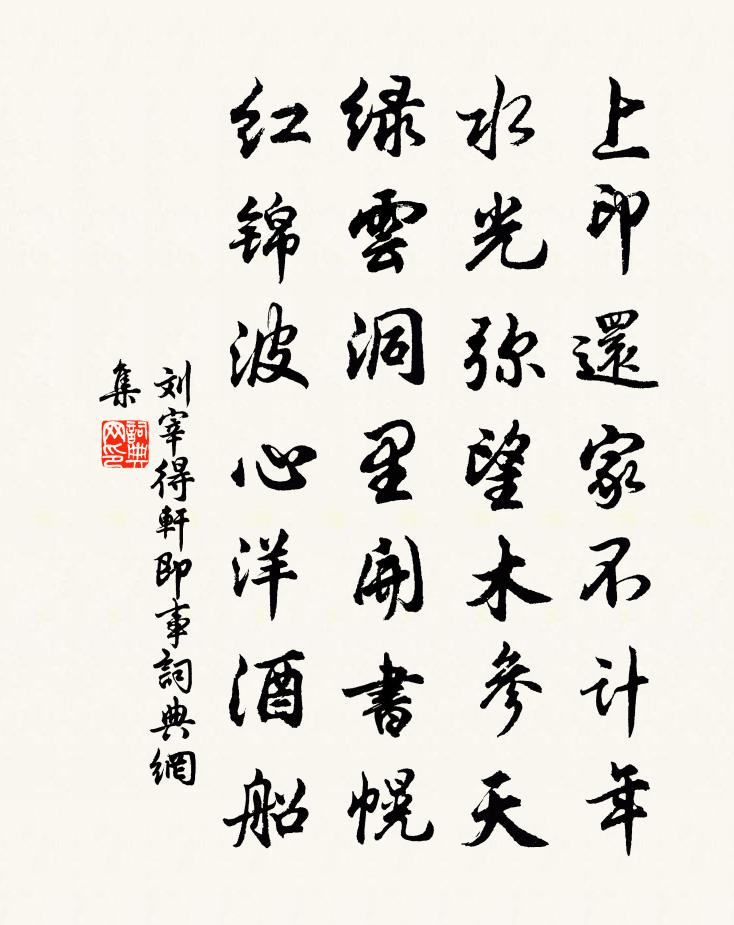 上印還家不计年
水光弥望木參天
緑雲洞里開書幌
红锦波心洋酒船
刘宰得軒即事詞典網
集
詞典
网印